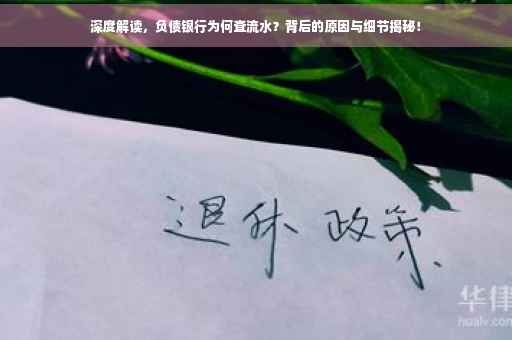 深度解读，负债银行为何查流水？背后的原因与细节揭秘！
退休 政策
华律
hualv.com